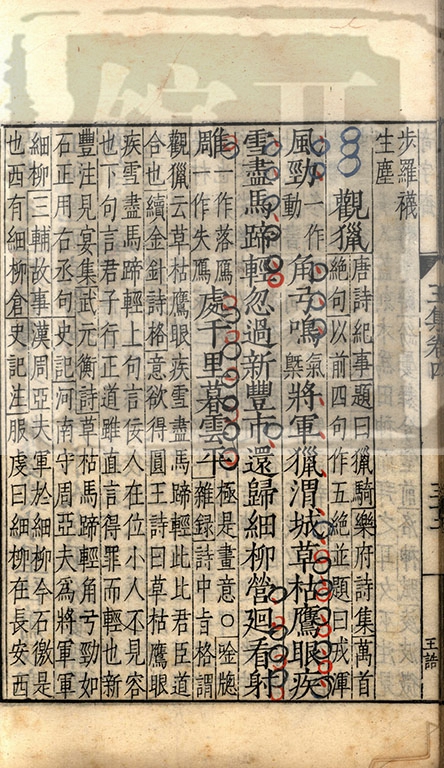 三集卷四
王誥
步羅襪
生塵
觀獵 唐詩紀事題曰獵騎樂府詩集萬首
絕句以前四句作五絕並題曰戎渾
風勁一作動角弓鳴氣槩將軍獵渭城草枯鷹眼疾
雪盡馬蹄輕忽過新豐市還歸細柳營廻看射
雕一作落鴈
雕一作失鴈
處千里暮雲平
極是畫意○唫牕
雜録詩中旨格謂
觀獵云草枯鷹眼疾雪盡馬蹄輕此比君臣道
合也續金針詩格意欲得圓王詩曰草枯鷹眼
疾雪盡馬蹄輕上句言侫人在位小人不見容
也下句言君子行正道雖直言得罪而輕也新
豐注見宴集武元衡詩草枯馬蹄輕角弓勁如
石正用右丞句史記河南守周亞夫為將軍軍
細柳三輔故事漢周亞夫軍於細柳今石徼是
也西有細柳倉史記注服虔曰細柳在長安西